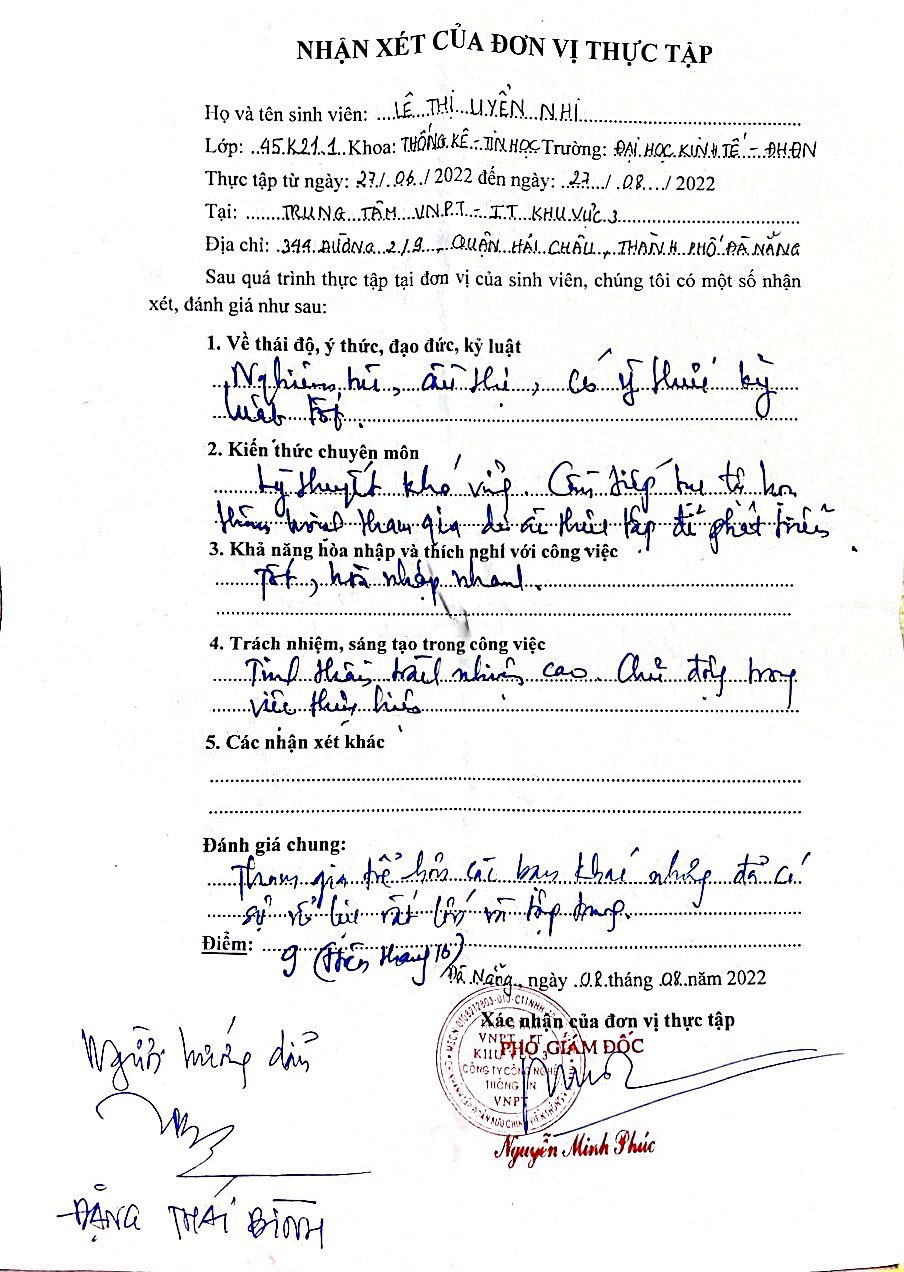 NHẬN XÉT CỦA ĐƠN VỊ THỰC TẬP
Họ và tên sinh viên: LÊ THỊ UYỂN NHI
Lớp: 45K21.1 Khoa: THỐNG KÊ - TIN HỌC Trường: ĐẠI HỌC KINH TẾ - ĐHĐN
Thực tập từ ngày: 27/06/2022 đến ngày: 27/08/2022
Tại: TRUNG TÂM VNPT - IT KHU VỰC 3
Địa chỉ: 344 ĐƯỜNG 2/9, QUẬN HẢI CHÂU, THÀNH PHỐ ĐÀ NẴNG
Sau quá trình thực tập tại đơn vị của sinh viên, chúng tôi có một số nhận
xét, đánh giá như sau:
1. Về thái độ, ý thức, đạo đức, kỷ luật
Nghiêm túc, cầu thị, có ý thức kỷ
luật tốt.
2. Kiến thức chuyên môn
Lý thuyết khá vững. Cần tiếp tục
tham gia dự án thực tập để phát triển
3. Khả năng hòa nhập và thích nghi với công việc
Tốt, hòa nhập nhanh.
4. Trách nhiệm, sáng tạo trong công việc
Tinh thần trách nhiệm cao. Chủ động trong
việc thực hiện
5. Các nhận xét khác
Đánh giá chung:
Tham gia trễ hơn các bạn khác nhưng đã có
sự nỗ lực rất lớn và tập trung.
Điểm: 9 (trên thang 10)
Đà Nẵng, ngày 08 tháng 08 năm 2022
Xác nhận của đơn vị thực tập
PHÓ GIÁM ĐỐC
VNPT
KHU
CÔNG TY CÔNG NGHỆ
THÔNG TIN
VNPT
Người hướng dẫn
Nguyễn Minh Phúc
ĐẶNG THÁI BÌNH